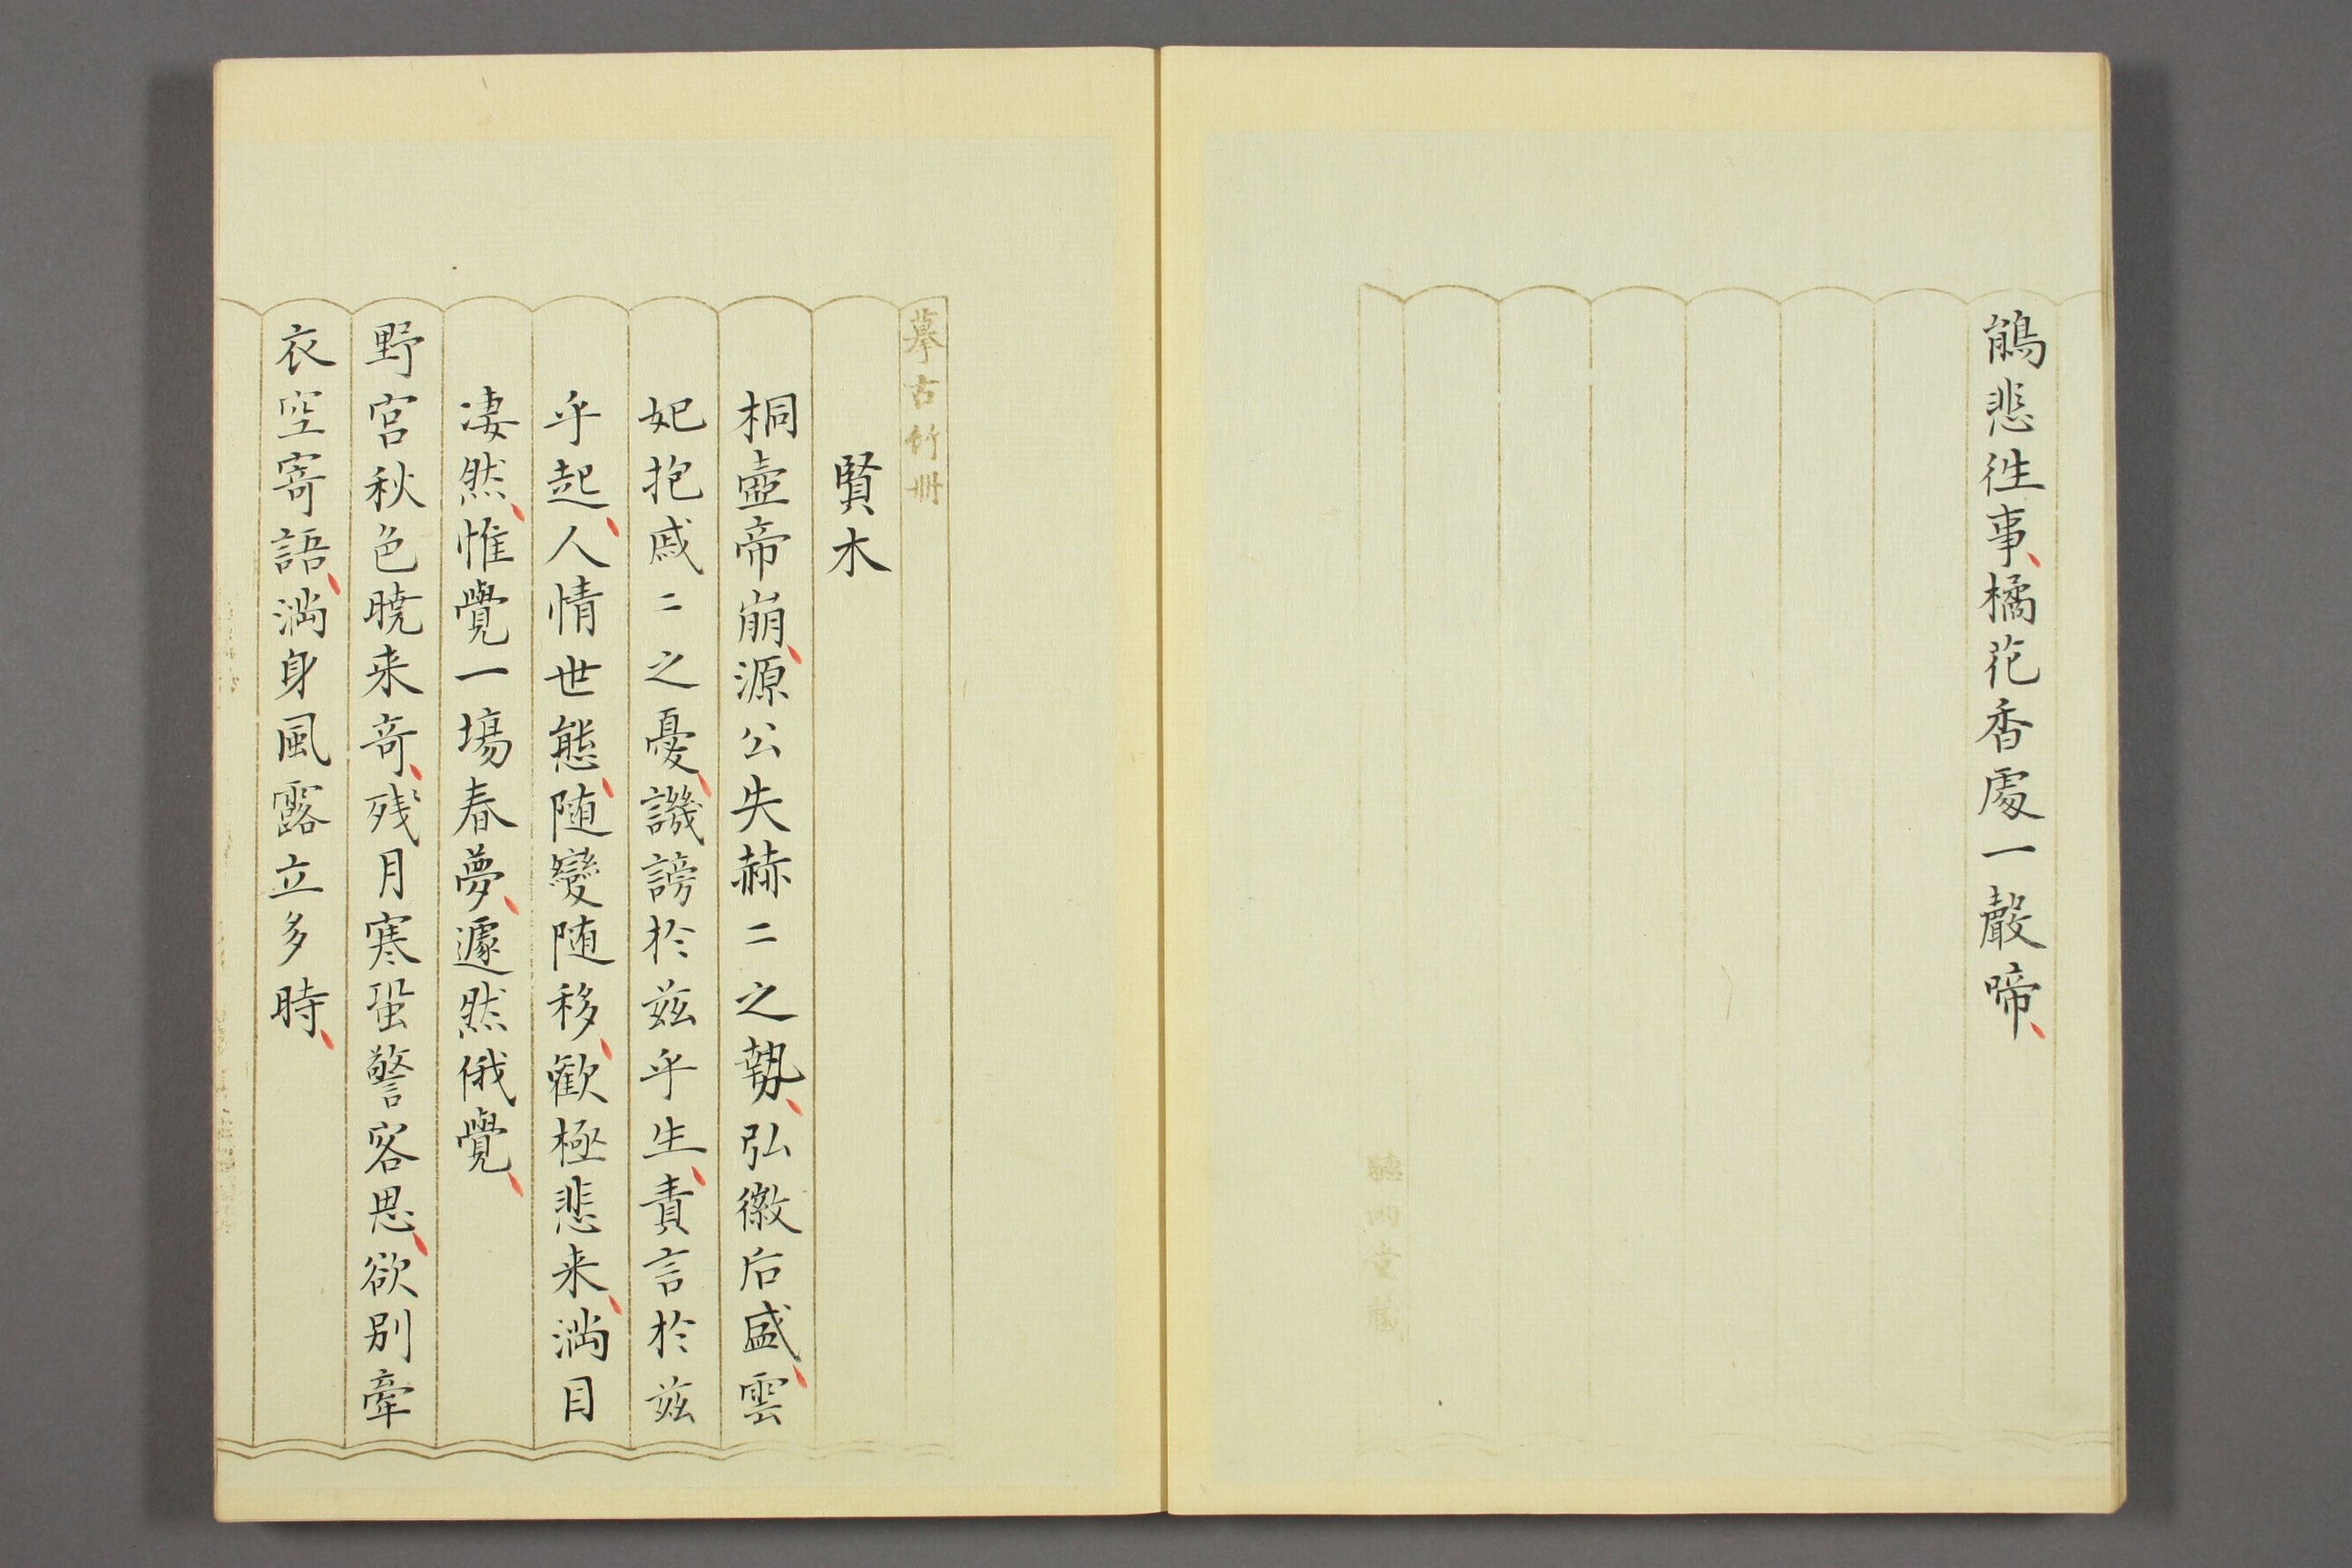 鵑悲徃事、橘花香處一聲啼、
摹古竹冊
賢木
桐壺帝崩、源公失赫〻之勢、弘徽后盛、雲
妃抱戚〻之憂、譏謗於兹乎生、責言於兹
乎起、人情世態、随變随移、歡極悲来、満目
凄然、惟覺一場春夢、遽然俄覺、
野宮秋色暁来奇、残月寒蛩警客思、欲別牽
衣空寄語、満身風露立多時、